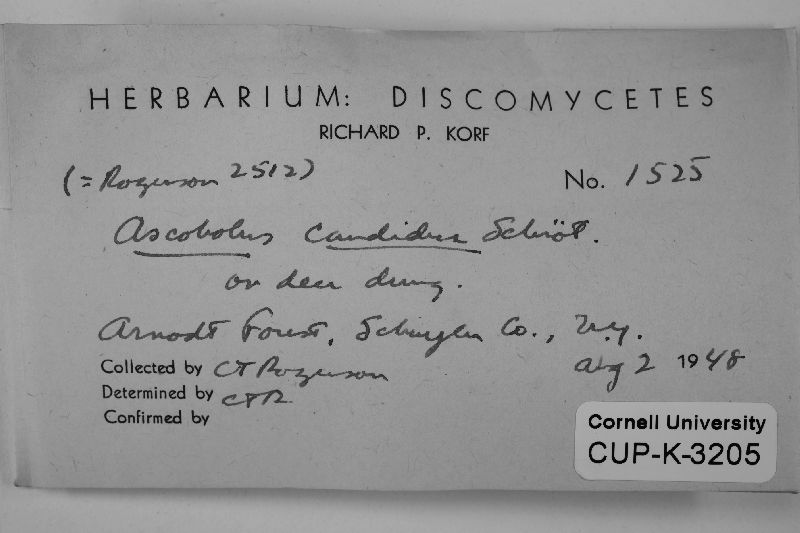 HERBARIUM: DISCOMYCETES
RICHARD P. KORF
(= Rogerson 2512)
No. 1525
Ascobolus candidus Schröt.
on deer dung.
Arnodt Forest, Schuyler Co., N.Y.
Collected by CT Rogerson
Aug 2 1948
Determined by CTR
Confirmed by
Cornell University
CUP-K-3205